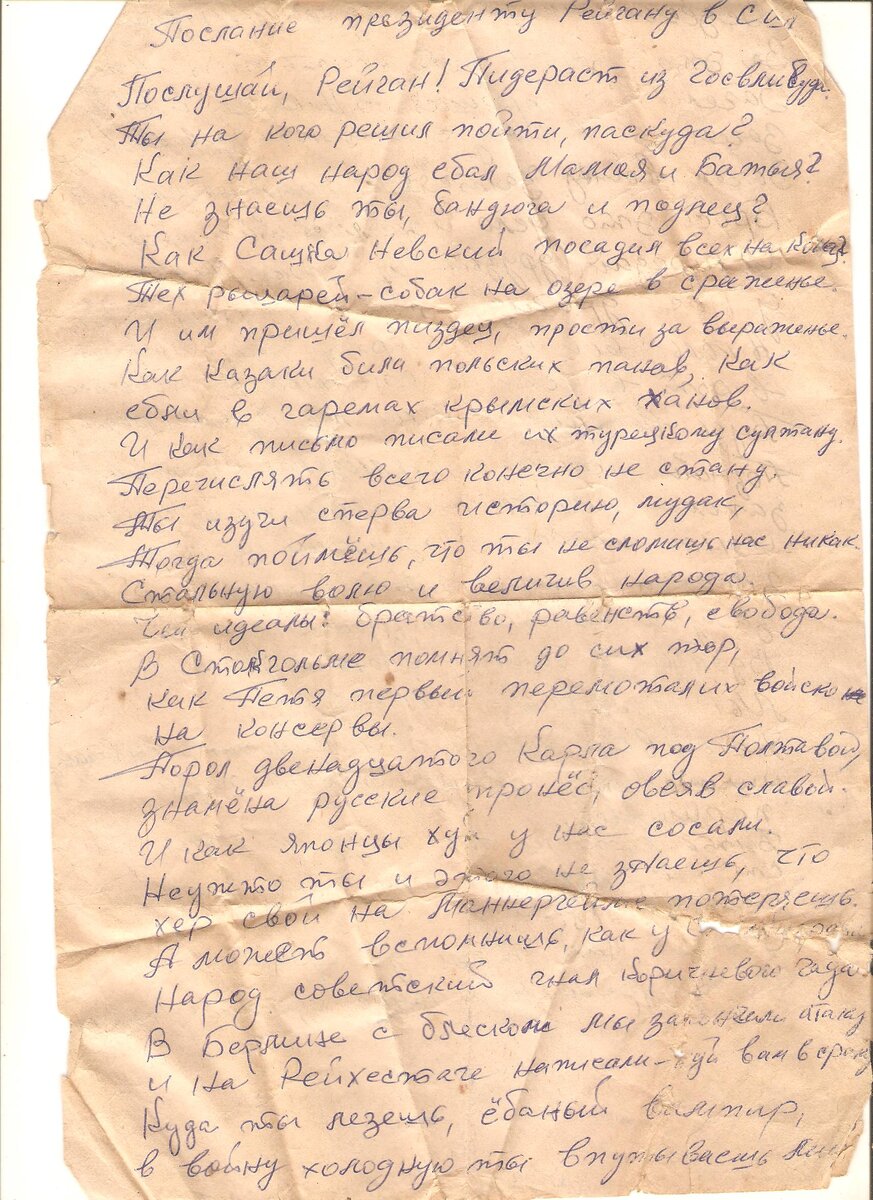 Послание президенту Рейгану в США
Послушай, Рейган! Пидераст из Говливуда.
Ты на кого решил пойти, паскуда?
Как наш народ ебал Мамая и Батыя?
Не знаешь ты, бандюга и подлец?
Как Сашка Невский посадил всех на конец?
Тех рыцарей-собак на озере в сраженье.
И им пришёл пиздец, прости за выраженье.
Как казаки били польских панов, как
ебли в гаремах крымских ханов.
И как письмо писали их турецкому султану.
Перечислять всего конечно не стану.
Ты изучи сперва историю, мудак,
Тогда поймёшь, что ты не сломишь нас никак.
Стальную волю и величие народа.
Чьи идеалы: братство, равенств, свобода.
В Стокгольме помнят до сих пор,
как Петя первый перемотал их войско
на консервы.
Порол двенадцатого Карла под Полтавой,
знамёна русские пронёс, овеяв славой.
И как японцы хуй у нас сосали.
Неужто ты и этого не знаешь, что
хер свой на Маннергейме потеряешь.
А может вспомнишь, как у
Народ советский гнал коричневого гада
В Берлине с блеском мы закончили атаку
и на Рейхестаге написали-хуй вам в сраку
Куда ты лезешь, ёбаный вампир,
в войну холодную ты впутываешь мир